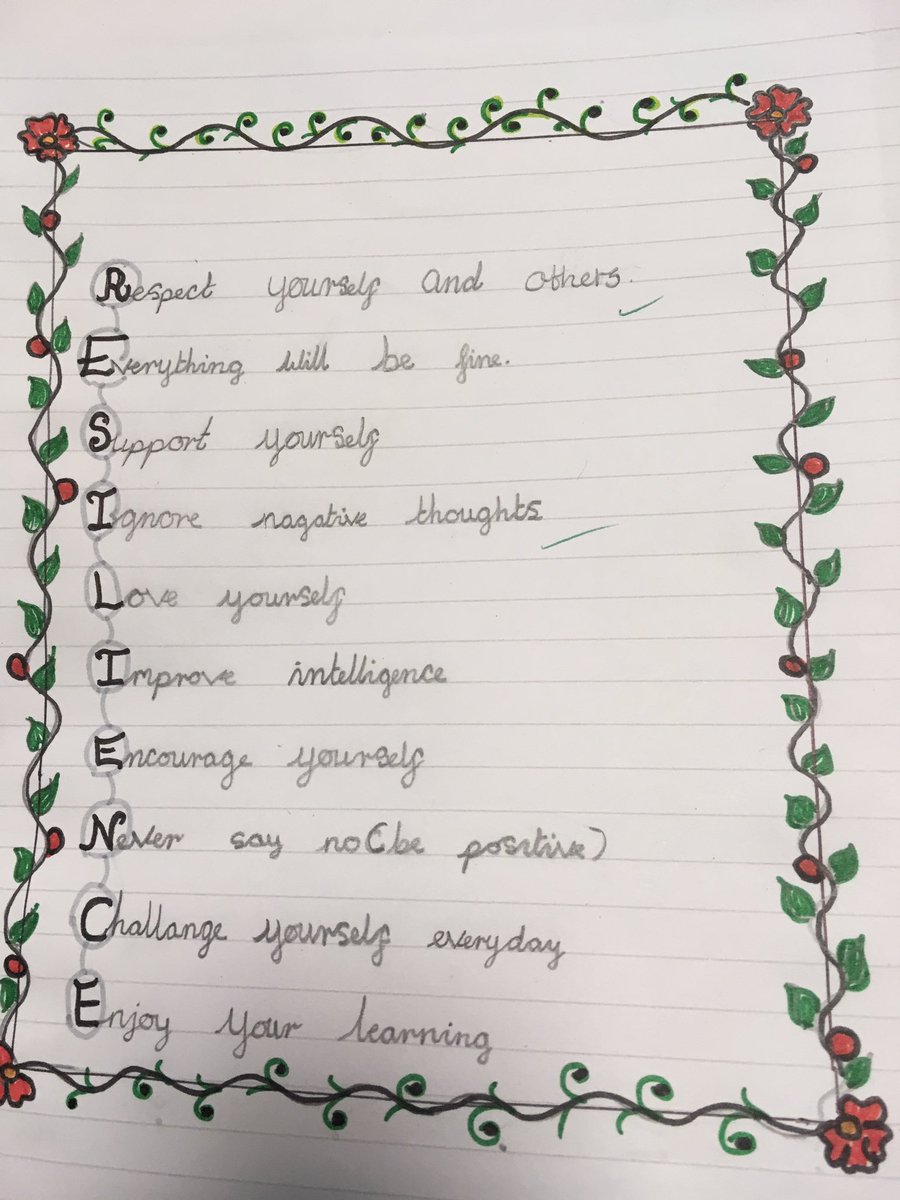 Respect yourself and others.
Everything will be fine.
Support yourself
Ignore nagative thoughts
Love yourself
Improve intelligence
Encourage yourself
Never say no(be positive)
Challange yourself everyday
Enjoy your learning